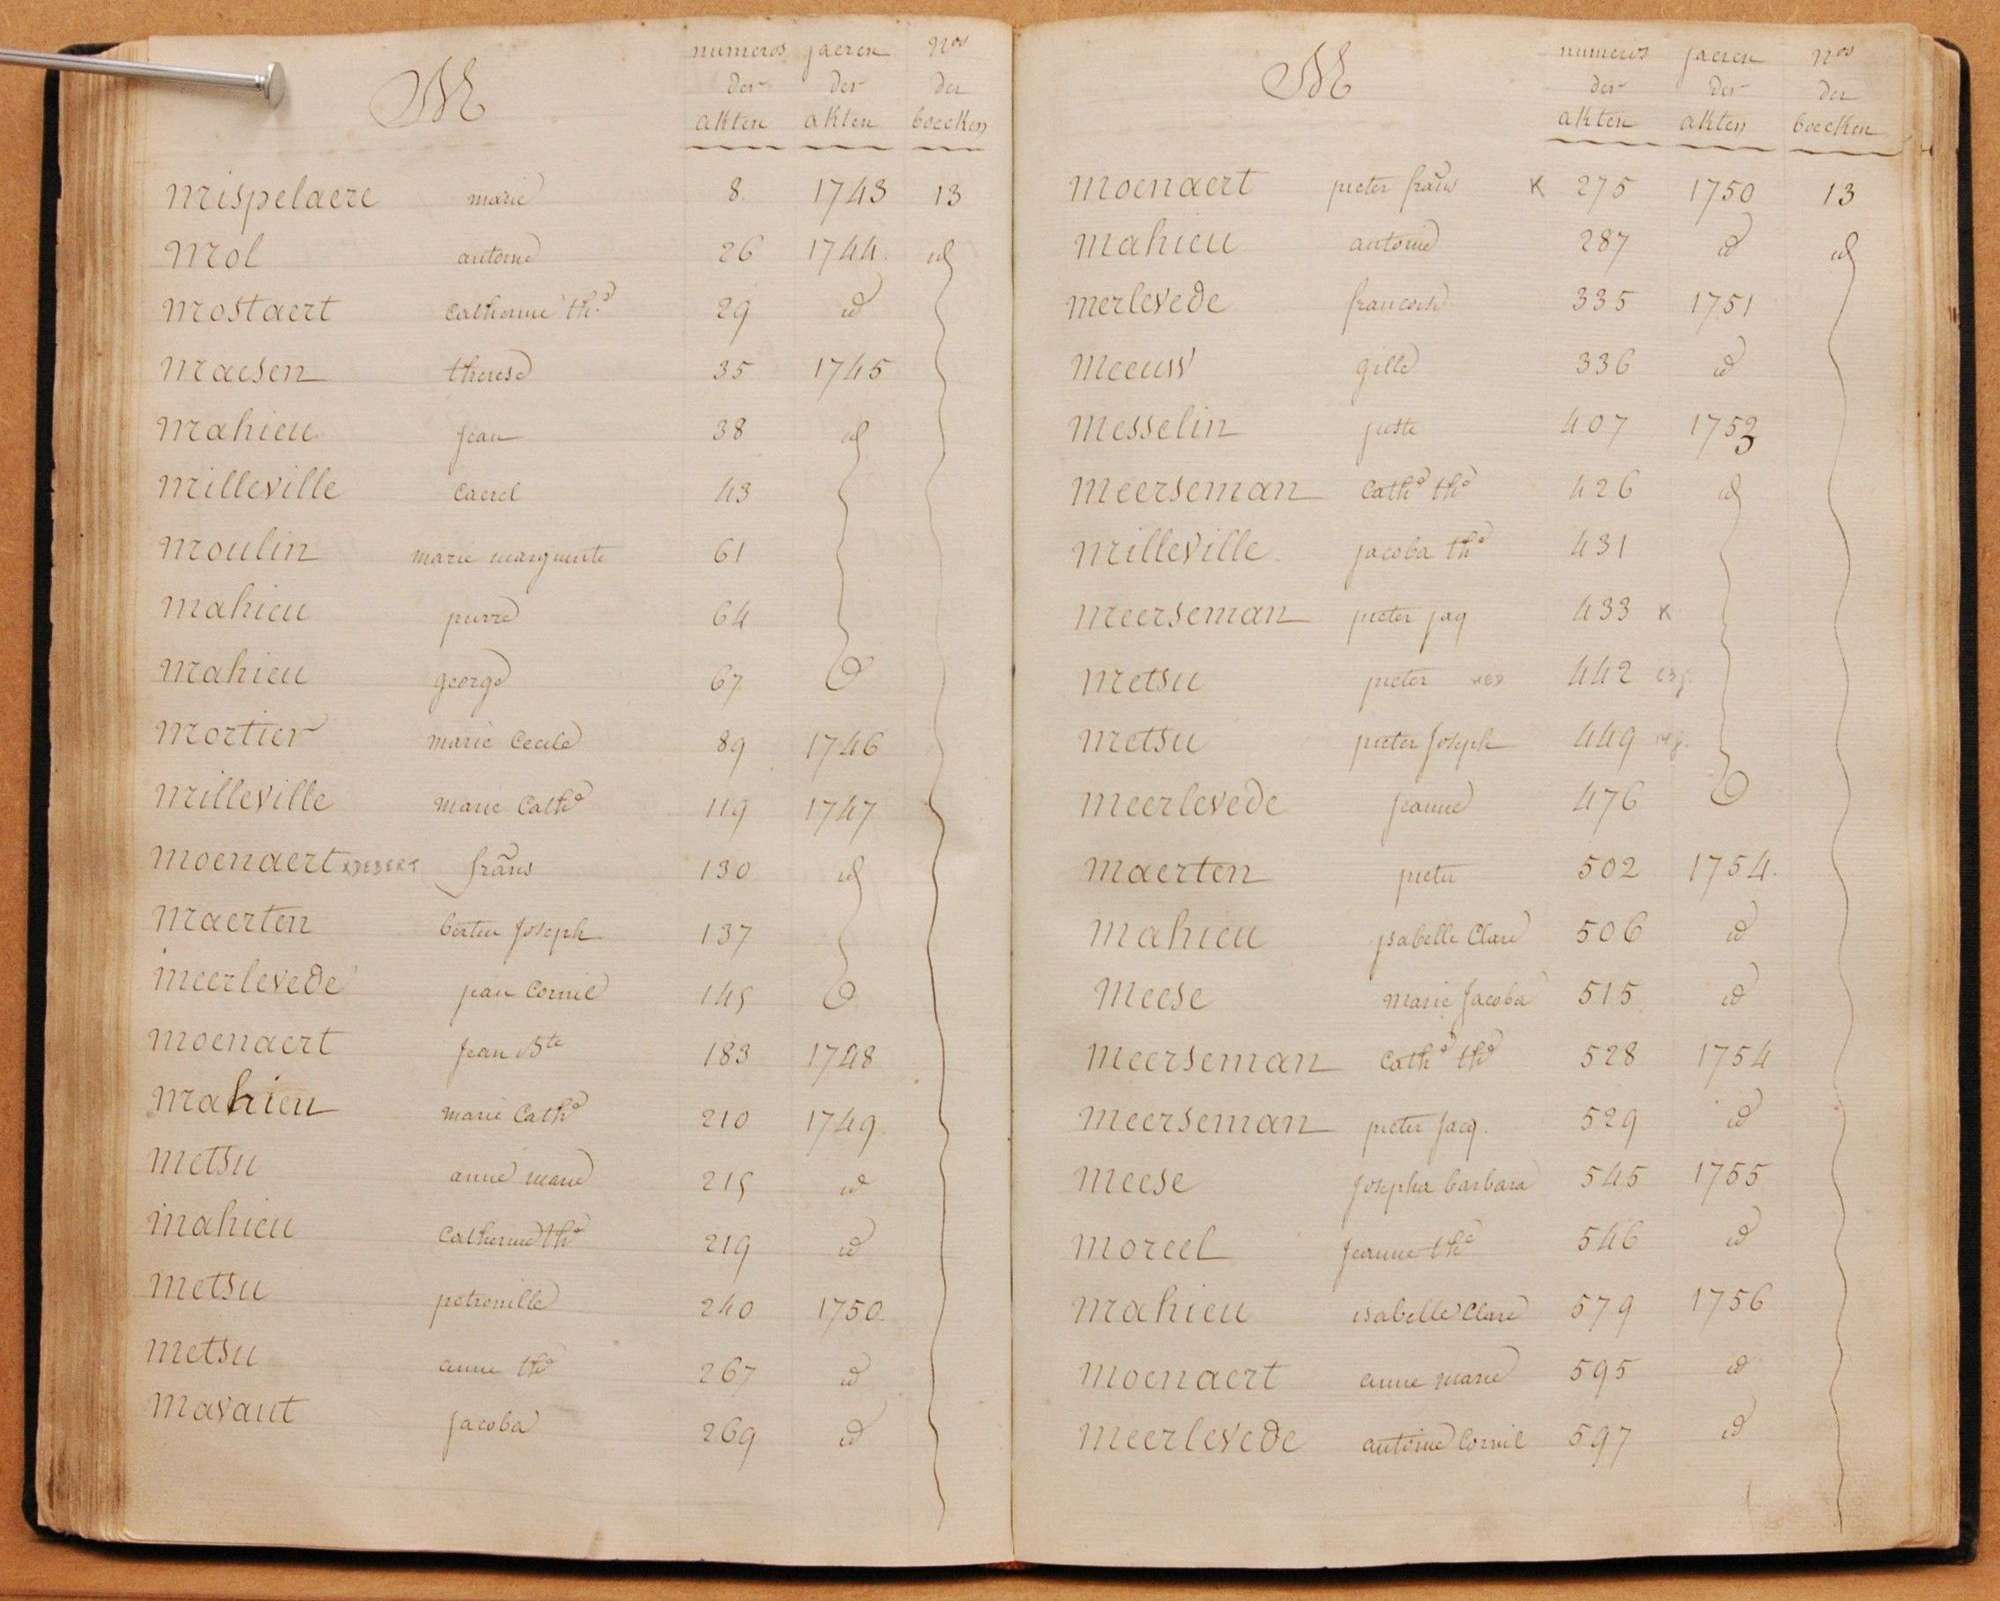 M numeros jaeren Nos
der der der
akten akten boecken
Mispelaere marie 8. 1743 13
Mol antoine 26 1744. id
Mostaert Catherine the 29 id
Maesen therese 35 1745
Mahieu Jean 38 id
Milleville Caerel 43
Moulin marie marguerite 61
Mahieu pierre 64
Mahieu george 67
Mortier marie Cecile 89 1746
Milleville marie Cathe 119 1747
Moenaert x DEBERT frans 130 id
Maerten Joseph 137
Meerlevede jean Cornil 145
Moenaert Jean Bte 183 1748
Mahieu marie Cathe 210 1749
Metsu anne marie 215 id
Mahieu Catherine the 219 id
Metsu petronille 240 1750
Metsu anne the 267 id
Mavaut Jacoba 269 id
M numeros jaeren Nos
der der der
akten akten boecken
Moenaert pieter frans x 275 1750 13
Mahieu antoine 287 id id
Merlevede francois 335 1751
Meeuw gille 336 id
Messelin juste 407 1753
Meerseman Cathe the 426 id
Milleville jacoba the 431
Meerseman pieter jaq 433 x
Metsu pieter 442
Metsu pieter Joseph 449
Meerlevede Jeanne 476
Maerten pieter 502 1754.
Mahieu ysabelle Clare 506 id
Meese marie Jacoba 515 id
Meerseman Cathe the 528 1754
Meerseman pieter Jacq. 529 id
Meese Josepha barbara 545 1755
Moreel Jeanne the 546 id
Mahieu isabelle Clare 579 1756
Moenaert anne marie 595 id
Meerlevede antoine Cornil 597 id